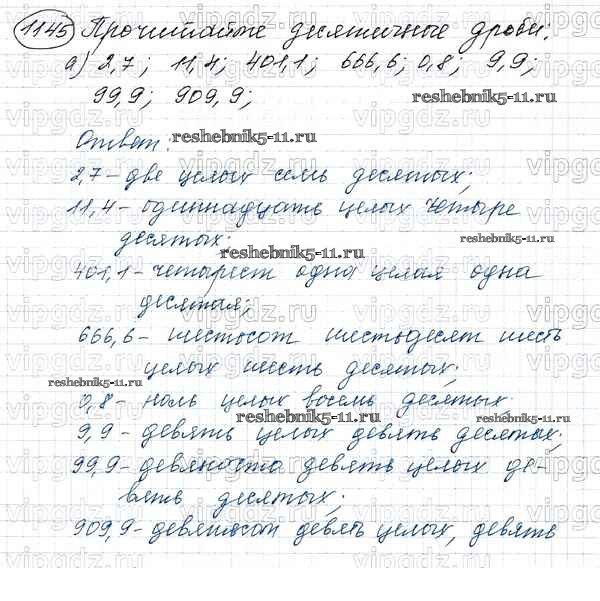 1145 Прочитайте десятичные дроби:
а) 2,7; 11,4; 401,1; 666,6; 0,8; 9,9;
99,9; 909,9;
Ответ:
2,7 - две целых семь десятых;
11,4 - одиннадцать целых четыре
десятых:
401,1 - четырест одна целая одна
десятая;
666,6 - шестьсот шестьдесят шесть
целых шесть десятых;
0,8 - ноль целых восемь десятых
9,9 - девять целых девять десятых;
99,9 - девяносто девять целых де-
вять десятых;
909,9 - девятьсот девять целых, девять
reshebnik5-11.ru
reshebnik5-11.ru
reshebnik5-11.ru
reshebnik5-11.ru
reshebnik5-11.ru
reshebnik5-11.ru
reshebnik5-11.ru
vipgdz.ru